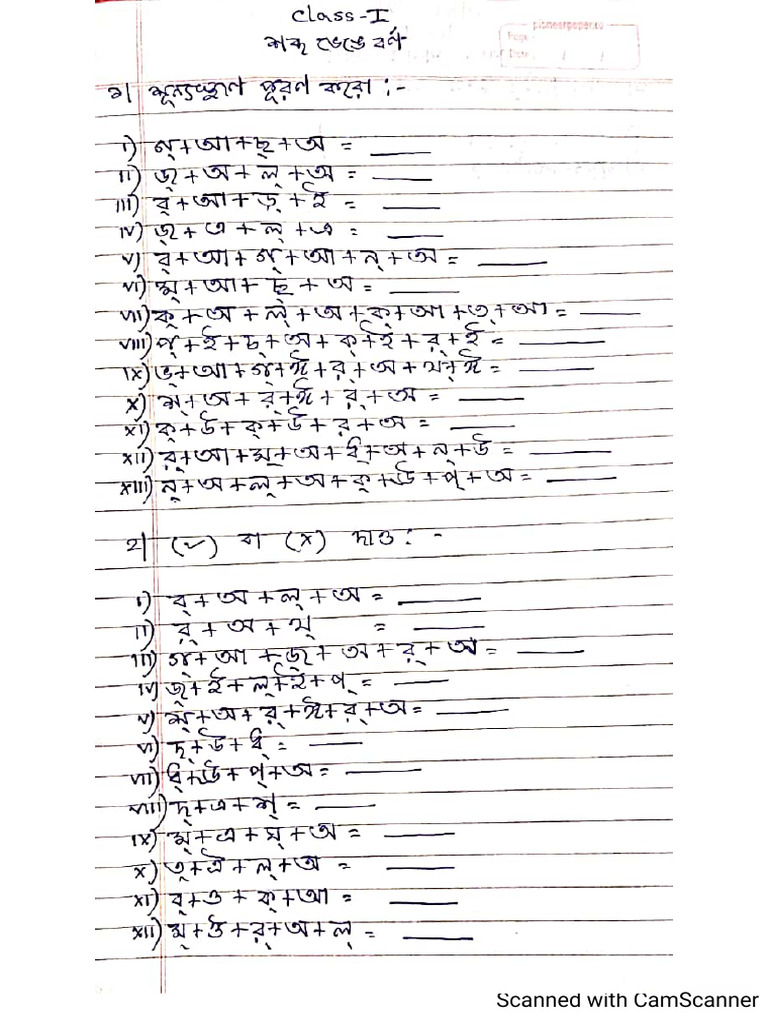 Class-I
শব্দ ভেঙে বর্ণ
pioneerpaper.co
Page :
Date :
১। শূন্যস্থান পূরণ করো :-
i) গ্+আ+ছ্+অ = ____
ii) জ্+অ+ল্+অ = ____
iii) ব্+আ+ড়্+ই = ____
iv) জ্+এ+ল্+এ = ____
v) ব্+আ+গ্+আ+ন্+অ = ____
vi) ম্+আ+ছ্+অ = ____
vii) ক্+অ+ল্+অ+ক্+আ+ত্+আ = ____
viii) প্+ই+চ্+অ+ক্+ই+র্+ই = ____
ix) ভ্+আ+গ্+ঈ+র্+অ+থ্+ঈ = ____
x) শ্+অ+র্+ঈ+র্+অ = ____
xi) ক্+উ+ক্+উ+র্+অ = ____
xii) র্+আ+ম্+অ+ধ্+অ+ন্+উ = ____
xiii) ন্+অ+ল্+অ+ক্+ঊ+প্+অ = ____
২। (✓) বা (x) দাও : -
i) ব্+অ+ল্+অ = ____
ii) র্+অ+থ্ = ____
iii) গ্+আ+জ্+অ+র্+অ = ____
iv) জ্+ই+ল্+ই+প্ = ____
v) শ্+অ+র্+ঈ+র্+অ = ____
vi) দ্+উ+ধ্ = ____
vii) ধ্+ঊ+প্+অ = ____
viii) দ্+এ+শ্ = ____
ix) ম্+এ+ঘ্+অ = ____
x) ত্+ঐ+ল্+অ = ____
xi) ব্+ও+ক্+আ = ____
xii) ম্+ঔ+র্+অ+ল্ = ____
Scanned with CamScanner